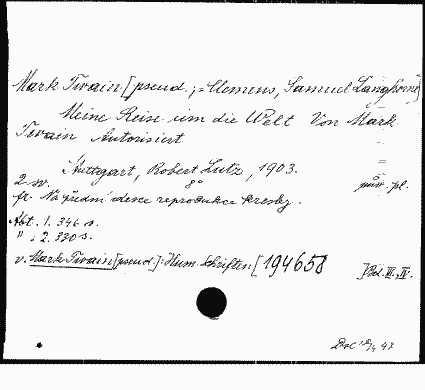 Mark Twain [pseud.; = Clemens, Samuel Langhorne]
Meine Reise um die Welt Von Mark
Twain Autorisiert
Stuttgart, Robert Lutz, 1903.
2 sv. 8° pův. pl.
fr. Na přední desce reprodukce kresby.
Abt. 1. 346 s.
" : 2. 330 s.
v. Mark Twain [pseud.]: Hum. Schriften [194658 ] Bd. III., IV.